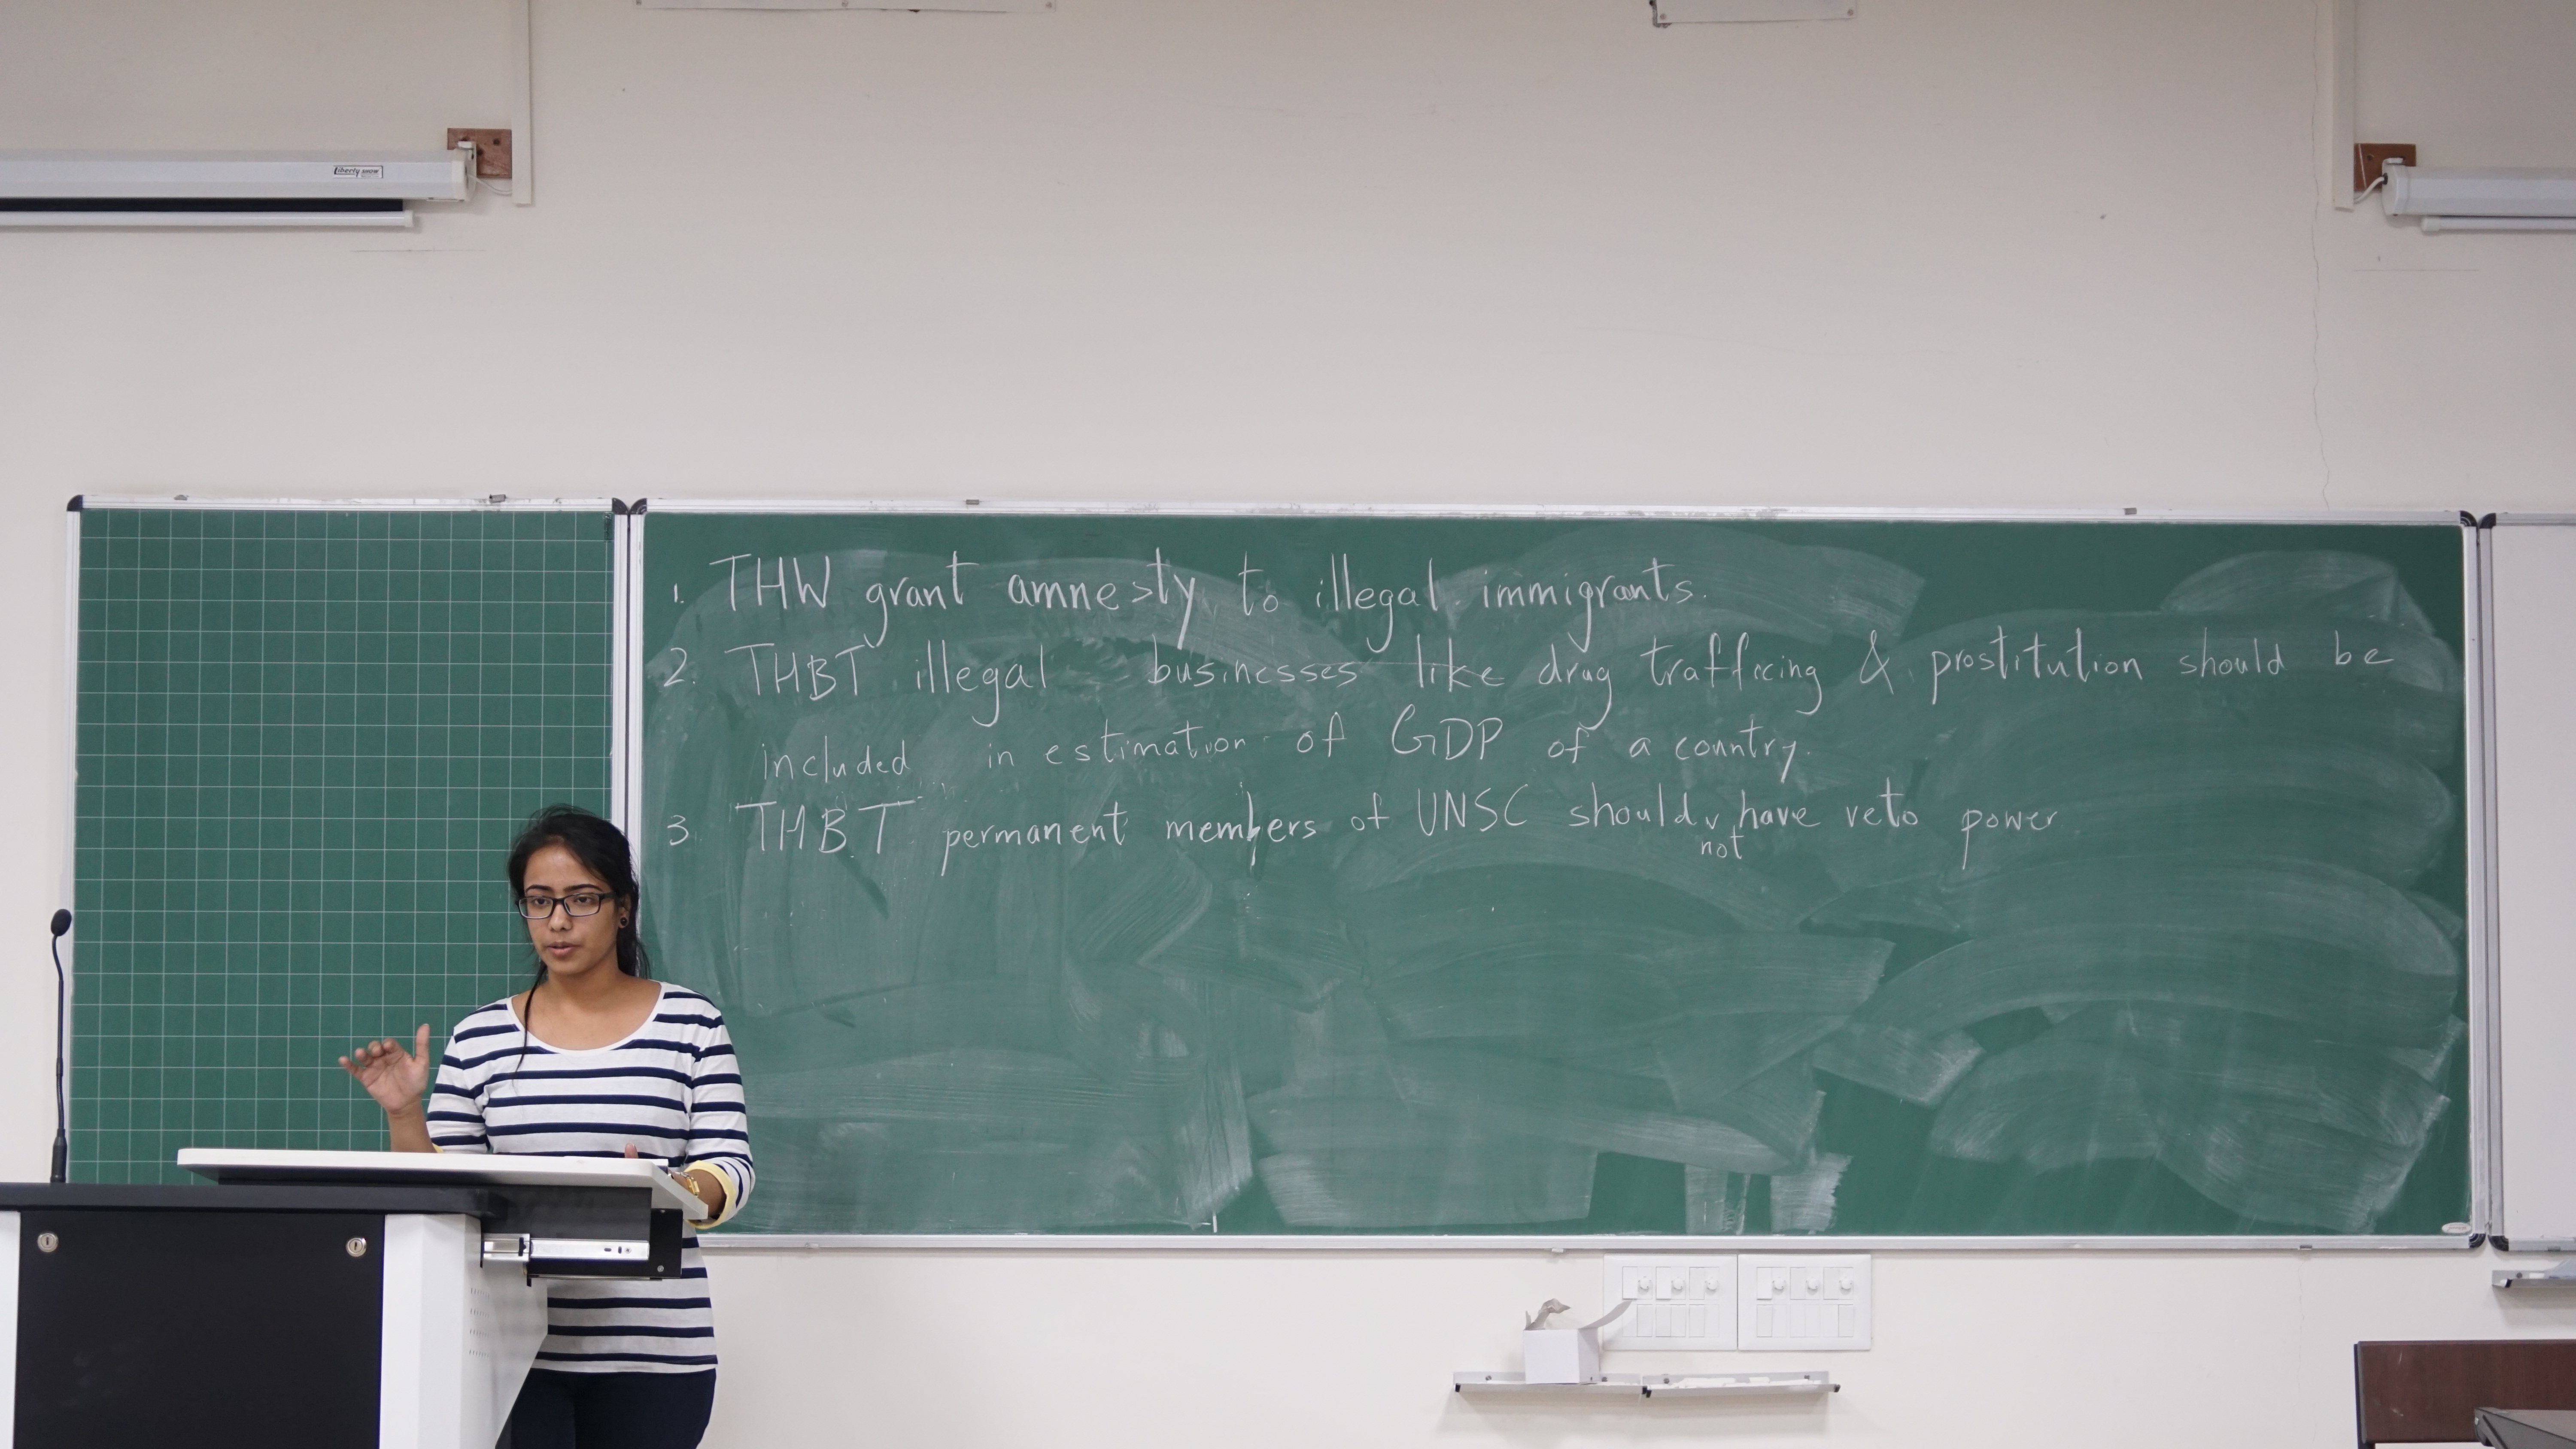 Liberty SHOW
1. THW grant amnesty to illegal immigrants.
2. THBT illegal businesses like drug trafficing & prostitution should be
included in estimation of GDP of a country.
3. THBT permanent members of UNSC should have veto power
not